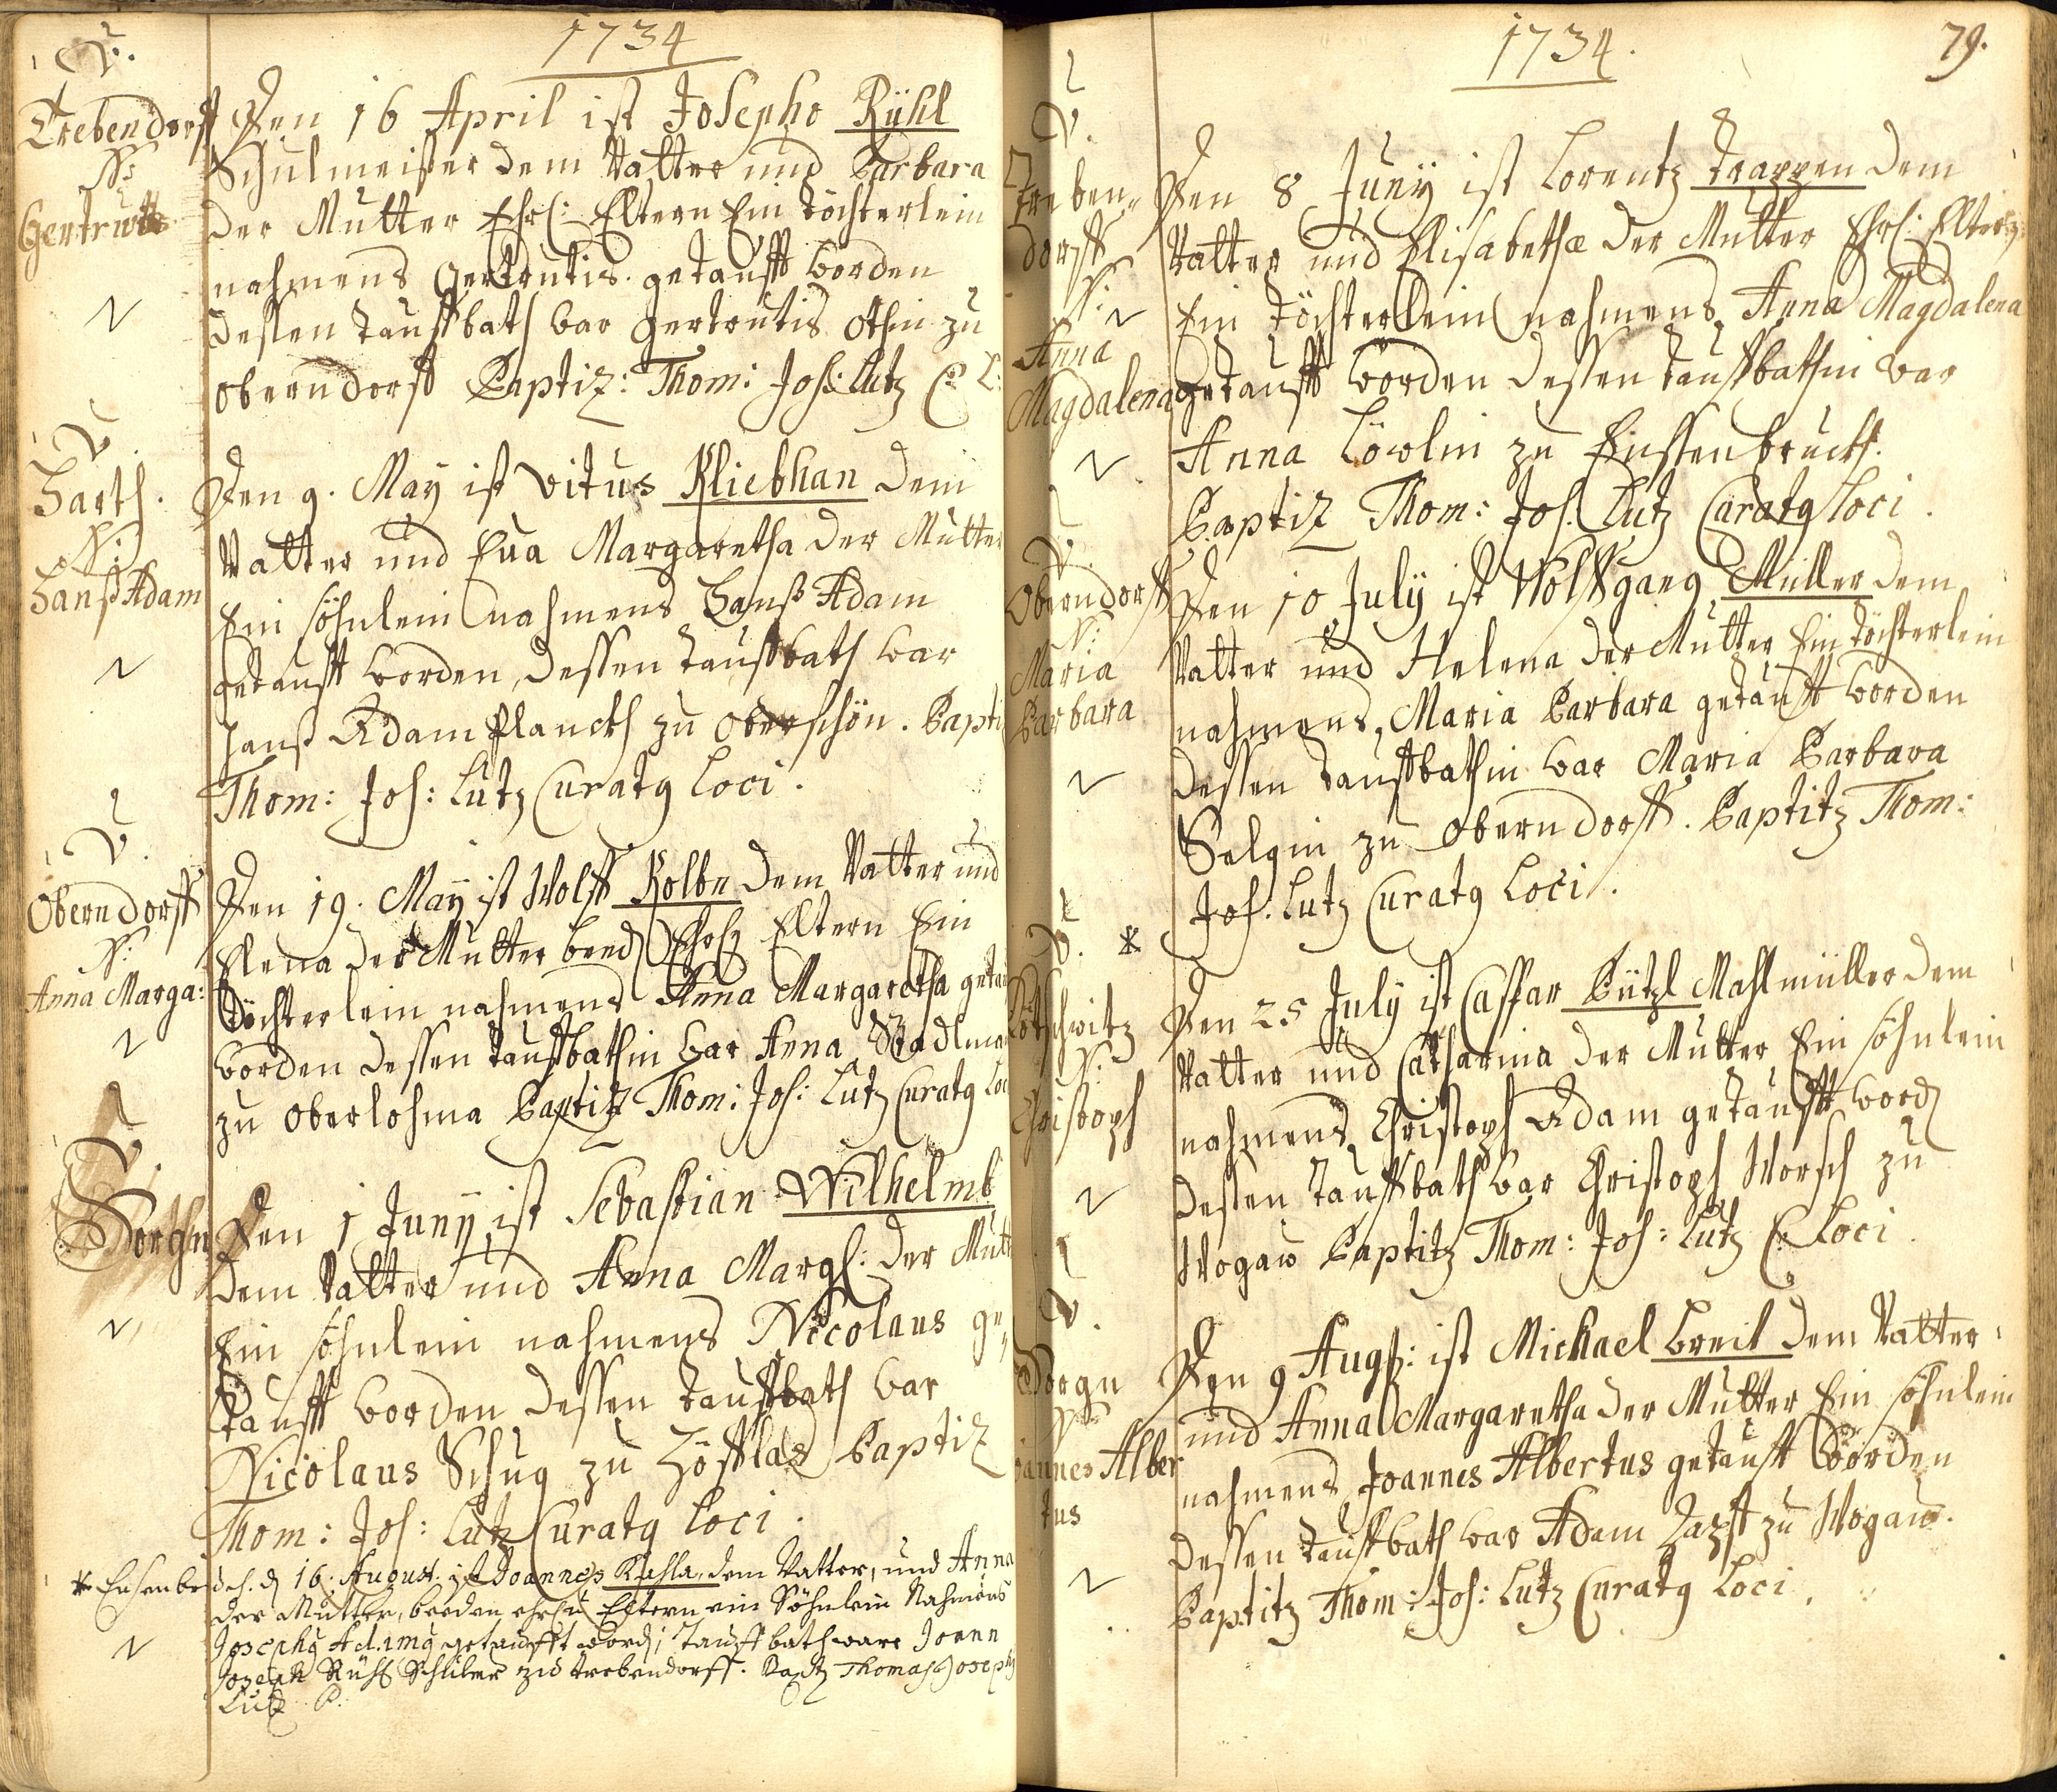 1734
V.
Trebendorff
N:
Gertrutis
Den 16 April ist Josepho Rühl
Schulmeister dem Vatter und Barbara
der Mutter Ehrl: Eltern Ein töchterlein
nahmens gertrutis getaufft worden
dessen tauffbath war gertrutis Othin zu
oberndorff Baptiz: Thom: Jos: Lutz C: L:
V.
Harth.
N:
Hanß Adam
Den 9. May ist Vitus Kliebhan dem
Vatter und Eua Margaretha der Mutter
Ein söhnlein nahmens Hanß Adam
getaufft worden, dessen tauffbath war
Hanß Adam Planckh zu oberschön. Bapti
Thom: Jos: Lutz Curatg Loci.
V.
Oberndorff
N:
Anna Marga:
Den 19. May ist Wolff Kolbn dem Vatter und
Elena der Mutter beed Ehrl Eltern Ein
töchterlein nahmens Anna Margaretha getau
worden dessen tauffbathin war Anna Stadlma
zu oberlohma Baptiz Thom: Jos: Lutz Curatg Loci
V.
Sorgn
Den 1 Juny ist Sebastian Wilhelmb
dem Vatter und Anna Margh: der Mutt
Ein söhnlein nahmens Nicolaus ge
taufft worden dessen tauffbath war
Nicolaus Schug zu Höfflas Baptiz
Thom: Jos: Lutz Curatg Loci.
* d. 16. August. ist Joannes Kahla, dem Vatter, und Anna
der Mutter, beeden Eltern ein Söhnlein Nahmens
Josephg Adamg getaufft word; Tauffbath ware Joann
Joseph Rühl Schüler zu trebendorff. Bapt Thomas Joseph
Lutz C.
1734.
79.
V.
Treben-
dorff
N:
Anna
Magdalena
Den 8 Juny ist Lorentz trappen dem
Vatter und Elisabetha der Mutter Ehrl: Eltern
Ein töchterlein nahmens Anna Magdalena
getaufft worden dessen tauffbathin war
Anna Löwlin zu
Baptiz Thom: Jos. Lutz Curatg Loci.
V.
Oberndorff
N:
Maria
Barbara
Den 10 July ist Wolffgang Müller dem
Vatter und Helena der Mutter Ein töchterlein
nahmens, Maria Barbara getaufft worden
dessen tauffbathin war Maria Barbara
Salgin zu oberndorff. Baptitz Thom:
Jos: Lutz Curatg Loci.
V. *
N:
Christoph
Den 25 July ist Caspar Bützl Mahlmüller dem
Vatter und Catharina der Mutter Ein söhnlein
nahmens Christoph Adam getaufft word
dessen tauffbath war Christoph Worsch zu
Wogau Baptitz Thom: Jos: Lutz C: Loci.
V.
Sorgn
N:
Joannes Alber
tus
Den 9 Augs: ist Michael Breit dem Vatter
und Anna Margaretha der Mutter Ein söhnlein
nahmens Joannes Albertus getaufft worden
dessen tauffbath war Adam zu Wogau.
Baptitz Thom: Jos: Lutz Curatg Loci.